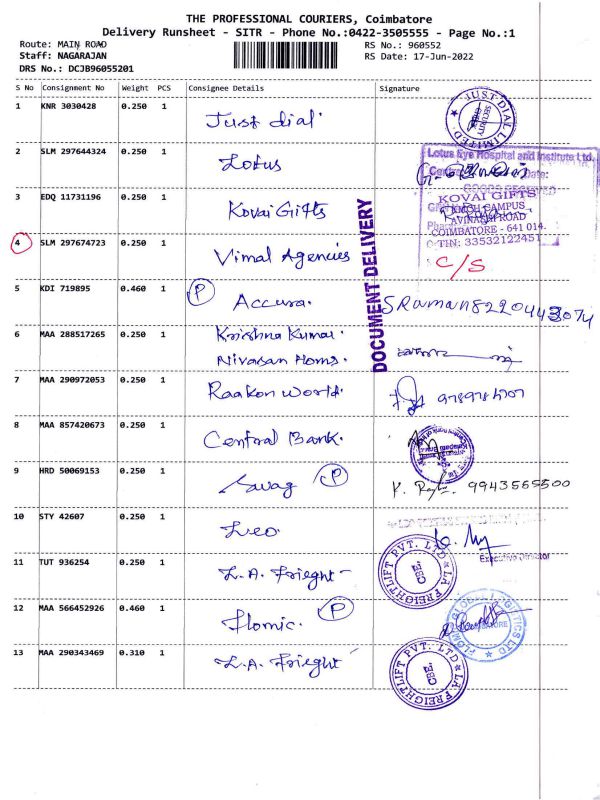 THE PROFESSIONAL COURIERS, Coimbatore
Delivery Runsheet - SITR - Phone No.:0422-3505555 - Page No.:1
Route: MAIN ROAD RS No.: 960552
Staff: NAGARAJAN RS Date: 17-Jun-2022
DRS No.: DCJB96055201
S No Consignment No Weight PCS Consignee Details Signature
1 KNR 3030428 0.250 1 Just dial
JUST DIAL LIMITED
SECURITY
2 SLM 297644324 0.250 1 Lotus
Lotus Eye Hospital and Institute Ltd.
Date:
3 EDQ 11731196 0.250 1 Kovai Gifts
KOVAI GIFTS
CAMPUS
AVINASHI ROAD
COIMBATORE - 641 014.
TIN: 33532122451
DOCUMENT DELIVERY
4 SLM 297674723 0.250 1 Vimal Agencies C/S
5 KDI 719895 0.460 1 P Accura. SRaman 8220443074
6 MAA 288517265 0.250 1 Krishna Kumar.
Nivasan Homs.
7 MAA 290972053 0.250 1 Raakon World.
8 MAA 857420673 0.250 1 Central Bank.
9 HRD 50069153 0.250 1 Savag P K. 9943565500
10 STY 42607 0.250 1 Leo
Executive Director
11 TUT 936254 0.250 1 L.A. Frieght
LA FREIGHTLIFT PVT. LTD
CBE.
12 MAA 566452926 0.460 1 Flomic. P
FLOMIC GLOBAL LOGISTICS LTD
13 MAA 290343469 0.310 1 L.A. Frieght
LA FREIGHTLIFT PVT. LTD
CBE.